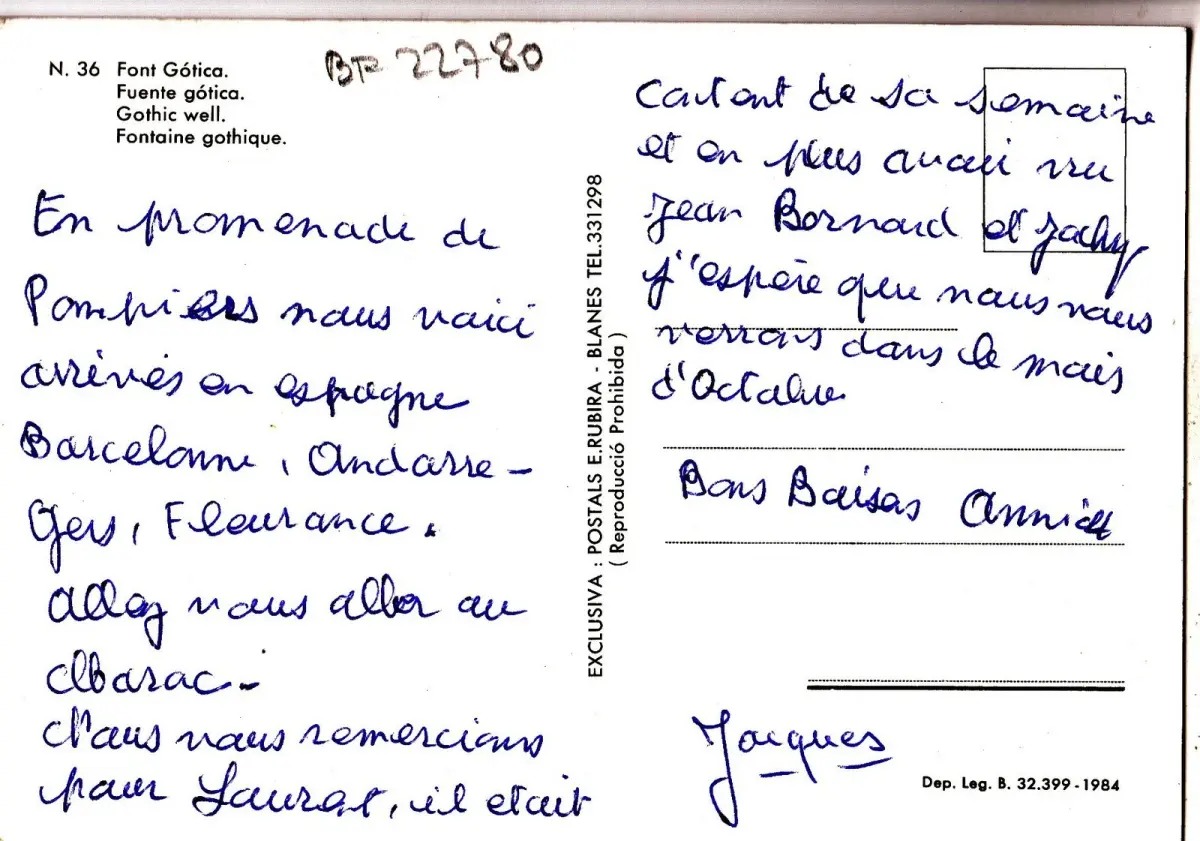 N. 36 Font Gótica.
Fuente gótica.
Gothic well.
Fontaine gothique.
BR 22780
En promenade de
Pompiers nous voici
arrivés en espagne
Barcelonne, Andorre-
Gers, Fleurance.
allez nous aller au
Nous vous remercions
pour Laurat, il etait
EXCLUSIVA : POSTALS E.RUBIRA - BLANES TEL.331298
( Reproducció Prohibida )
Contont de sa semaine
et en plus avoir vu
Jean Bernard et Jacky
j'espère que nous nous
verrons dans le mois
d'Octobre
Bons Baisas Annick
Jacques
Dep. Leg. B. 32.399-1984